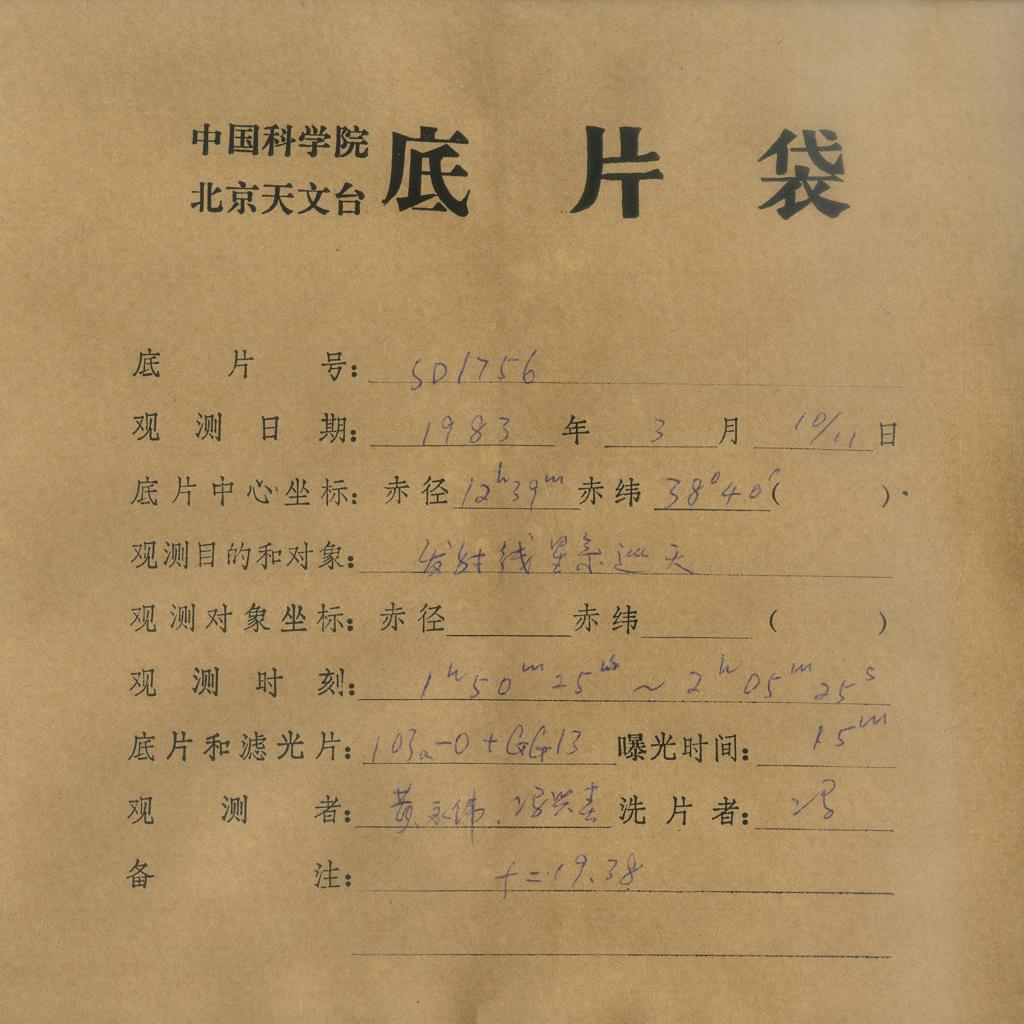 中国科学院
北京天文台
底片袋
底片号：SD1756
观测日期：1983年3月10/11日
底片中心坐标：赤径12ʰ39ᵐ赤纬38°40′( )·
观测目的和对象：发射线星系巡天
观测对象坐标：赤径 赤纬 ( )
观测时刻：1ʰ50ᵐ25ˢ~2ʰ05ᵐ25ˢ
底片和滤光片：103a-O+GG13 曝光时间：15ᵐ
观测者：黄永伟、冯兴春 洗片者：冯
备注：f=19.38